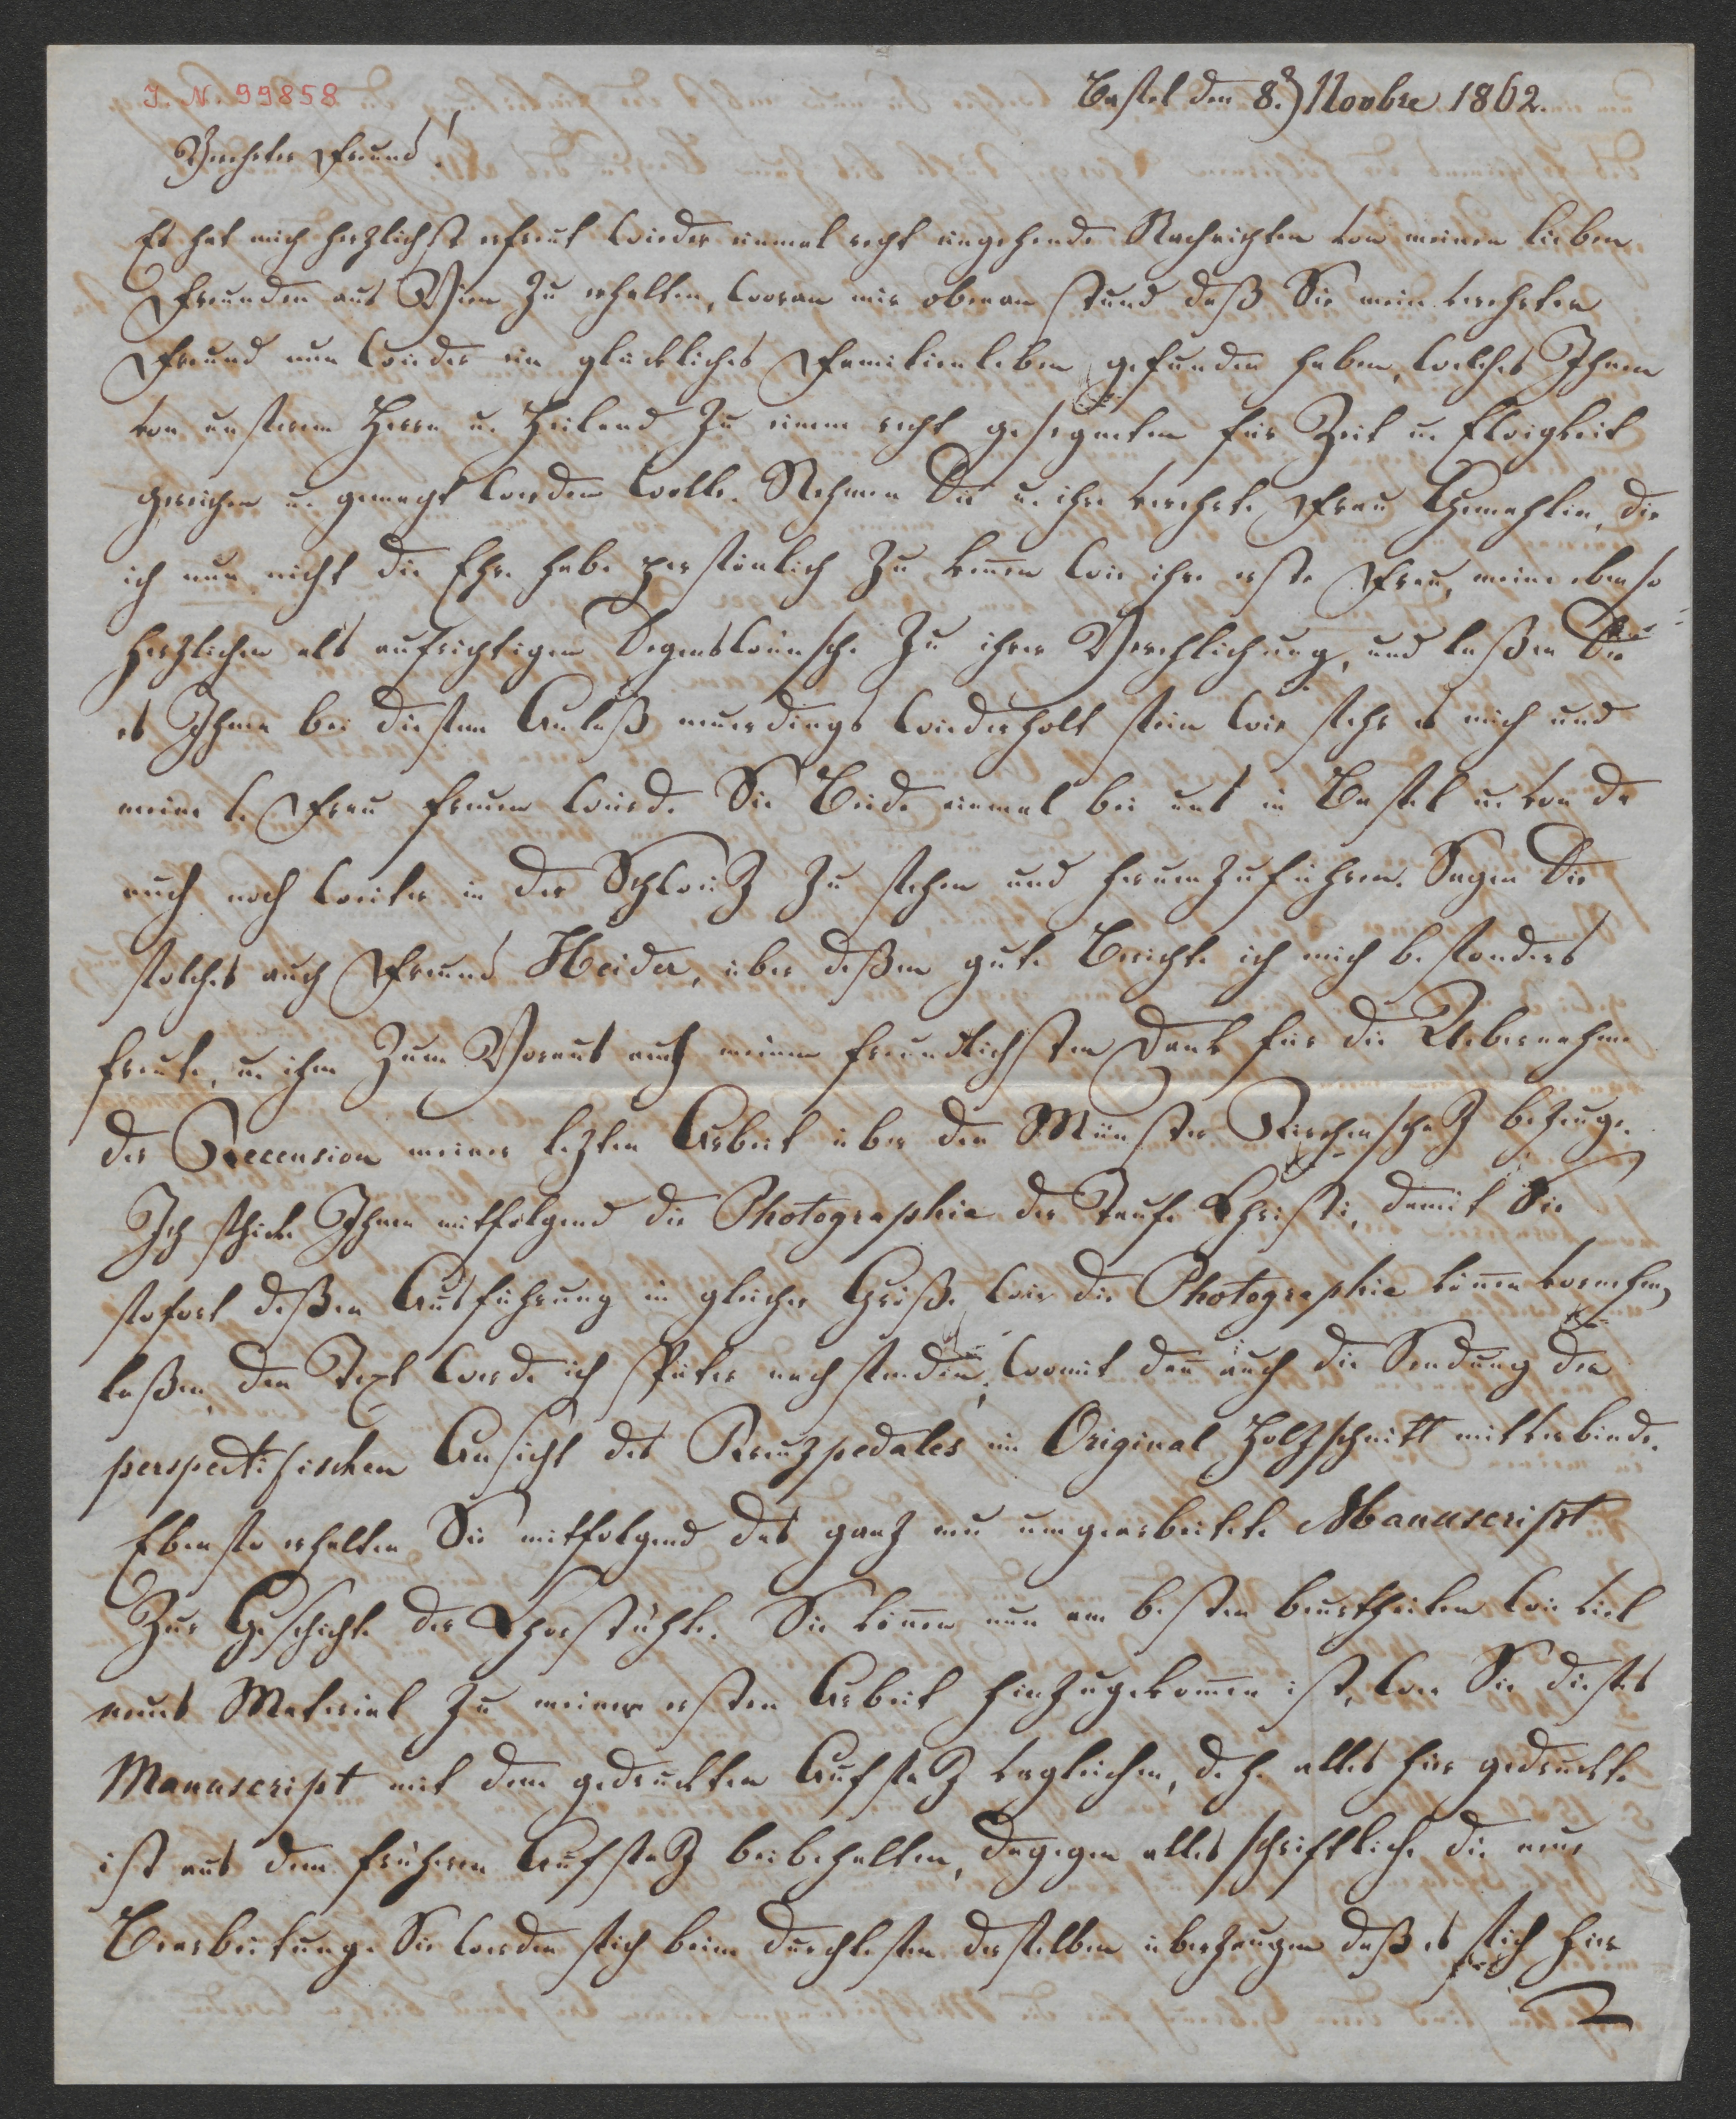 I. N. 99858
Basel den 8.t Novbre 1862.
Verehrter Freund!
Es hat mich herzlichst erfreut wieder einmal recht eingehende Nachrichten von meinen lieben
Freunden aus Wien zu erhalten, woran mir obenan stund daß Sie mein verehrter
Freund nun wieder ein glückliches Familienleben gefunden haben, welches Ihnen
von unserem Herrn u. Heiland zu einem recht gesegneten für Zeit u. Ewigkeit
gereichen u. gemacht werden wolle. Nehmen Sie u. ihre verehrte Frau Gemahlin, die
ich nun nicht die Ehre habe persönlich zu kennen wie ihre erste Frau, meine ebenso
herzlichen als aufrichtigen Segenswünsche zu ihrer Verehlichung, und laßen Sie
es Ihnen bei diesem Anlaß neuerdings wiederholt sein wie sehr es mich und
meine l. Frau freuen würde Sie Beide einmal bei uns in Basel u. von da
auch noch weiter in der Schweiz zu sehen und herumzuführen. Sagen Sie
solches auch Freund Heider, über deßen gute Berichte ich mich besonders
freute, u. ihm zum Voraus auch meinen freundlichsten Dank für die Uebernahme
der Recension meiner lezten Arbeit über den Münster Kirchenschaz bezeuge.
Ich schicke Ihnen mitfolgend die Photographie der Taufe Christi, damit Sie
sofort deßen Ausführung in gleicher Größe wie die Photographie können vornehmen
laßen, den Text werde ich später nachsenden, womit dann auch die Sendung der
perspectifischen Ansicht des Kreuzpedales im Original Holzschnitt mitverbinde.
Ebenso erhalten Sie mitfolgend das ganz neu umgearbeitete Manuscript
zur Geschichte der Chorstühle. Sie können nun am besten beurtheilen wie viel
neues Material zu meiner ersten Arbeit hinzugekommen ist, wen Sie dieses
Manuscript mit dem gedruckten Aufsaz vergleichen, d. h. alles hier gedruckte
ist aus dem früheren Aufsaz beibehalten, dagegen alles schriftliche die neue
Bearbeitung. Sie werden sich beim Durchlesen derselben überzeugen daß es sich hier